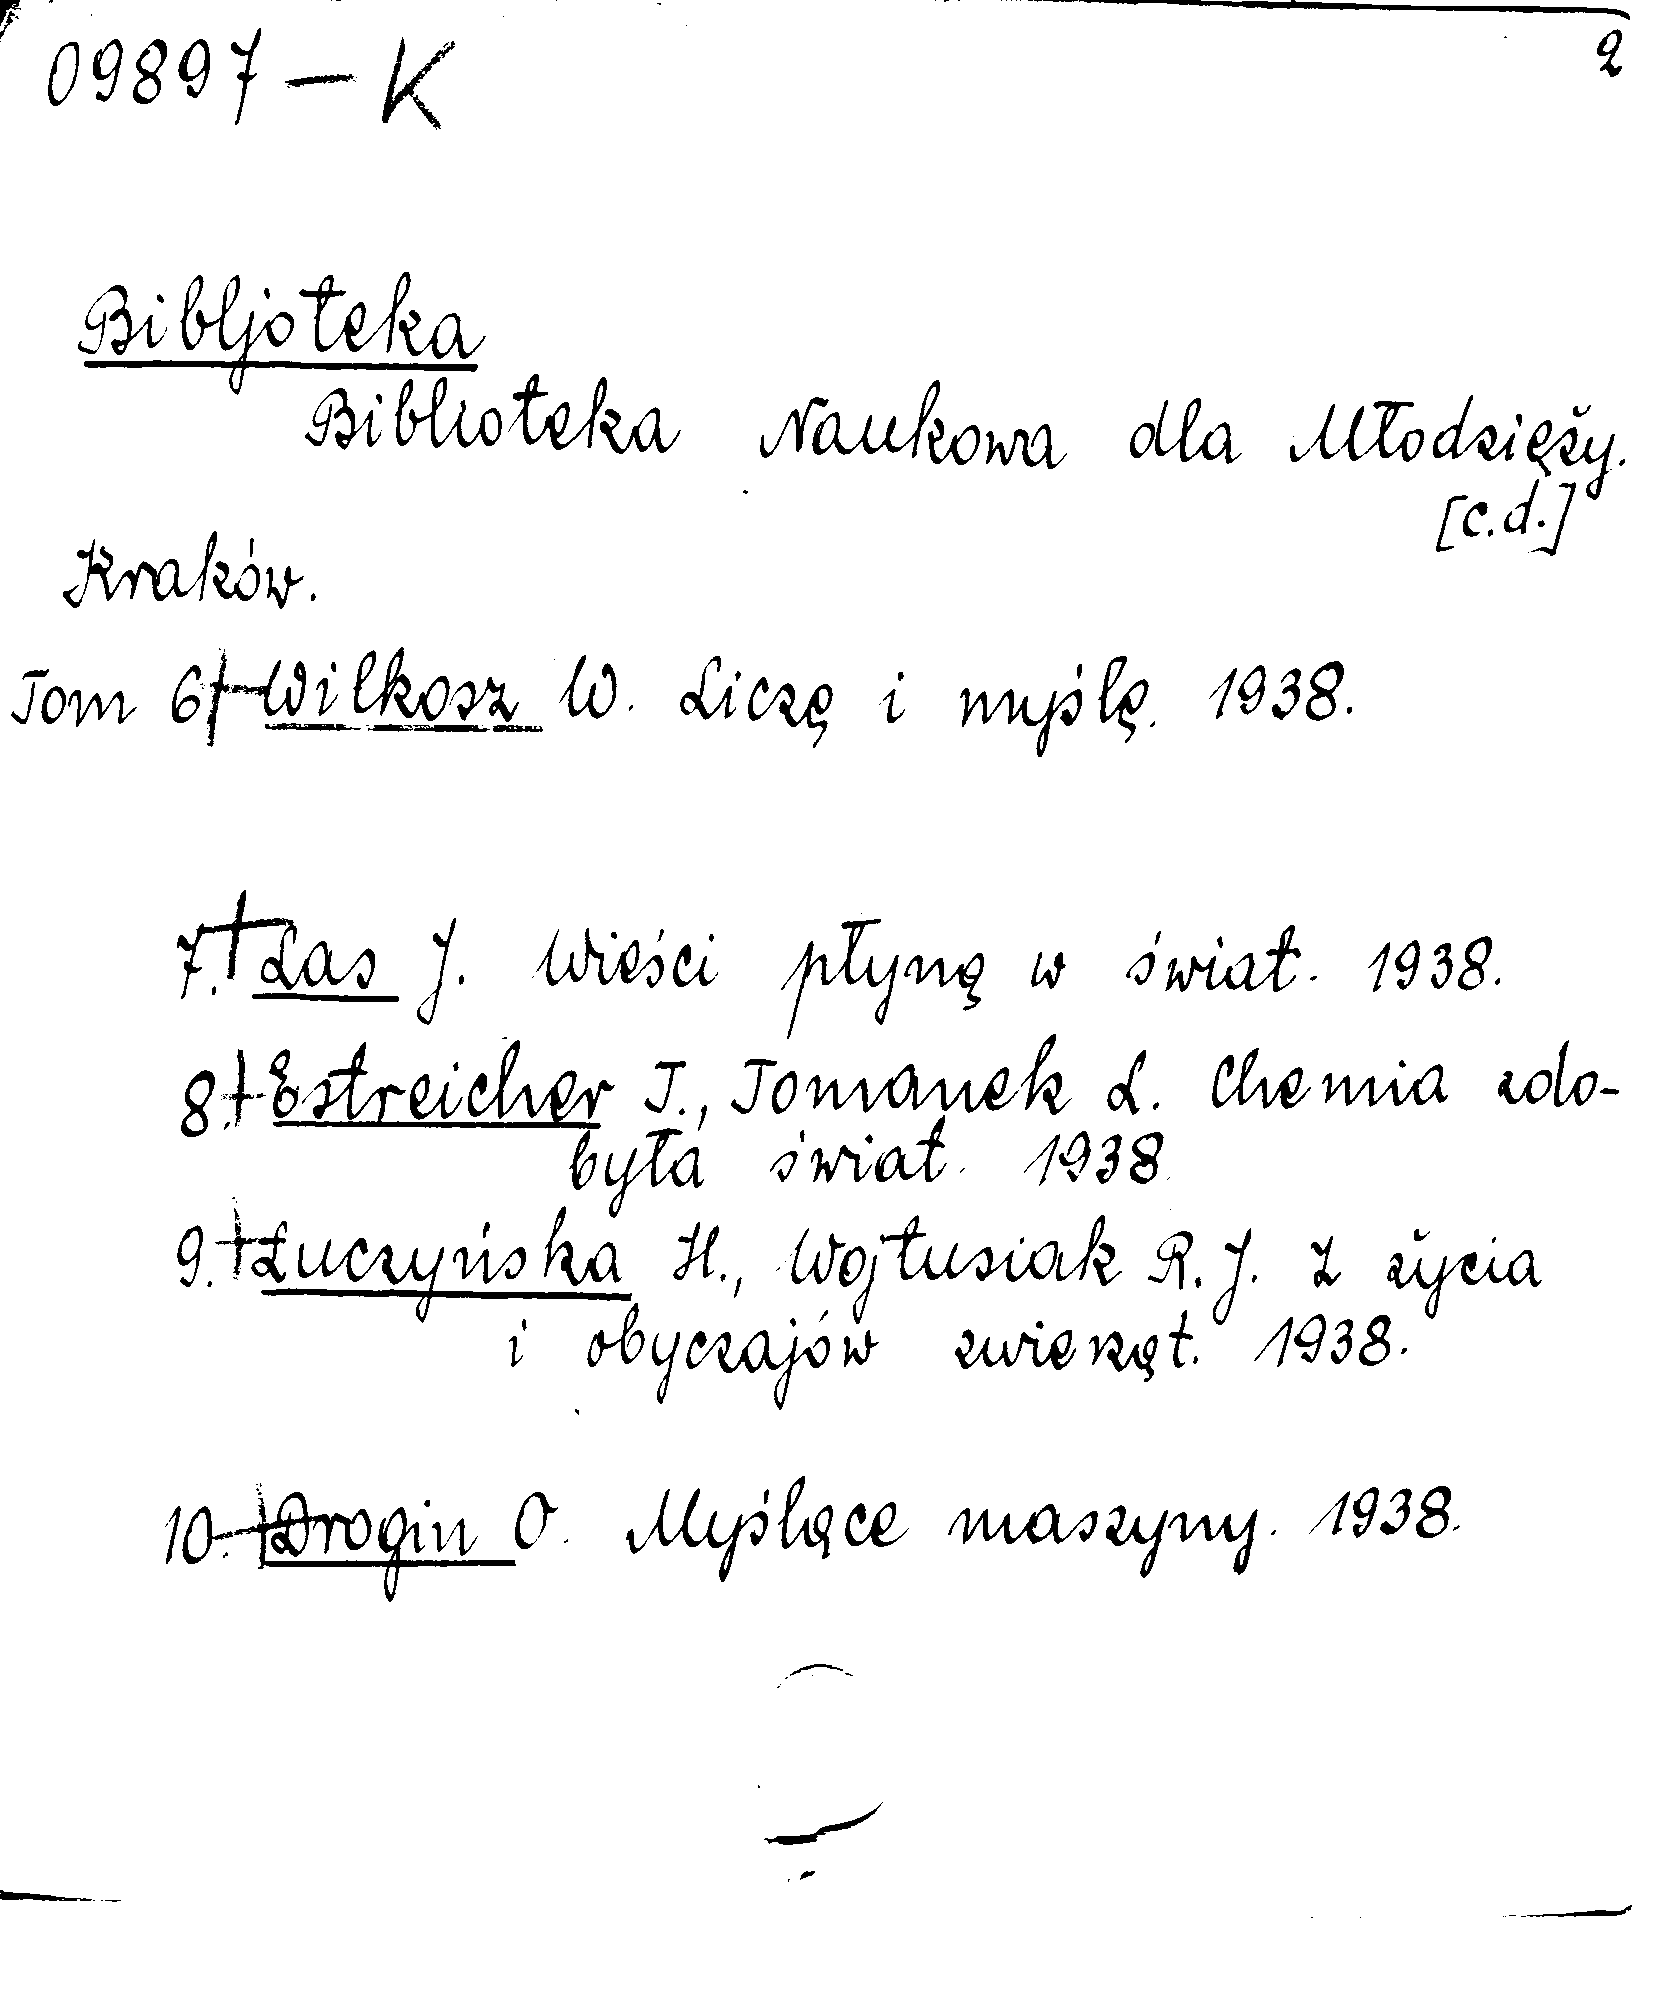 09897 – K 2
Bibljoteka
Biblioteka Naukowa dla Młodzieży.
[c.d.]
Kraków.
Tom 6 Wilkosz W. Liczę i myślę. 1938.
7. Las J. Wieści płyną w świat. 1938.
8. Estreicher T., Tomanek L. Chemia zdo-
była świat. 1938.
9. Łuczyńska H., Wojtusiak R. J. Z życia
i obyczajów zwierząt. 1938.
10. Drogin O. Myślące maszyny. 1938.